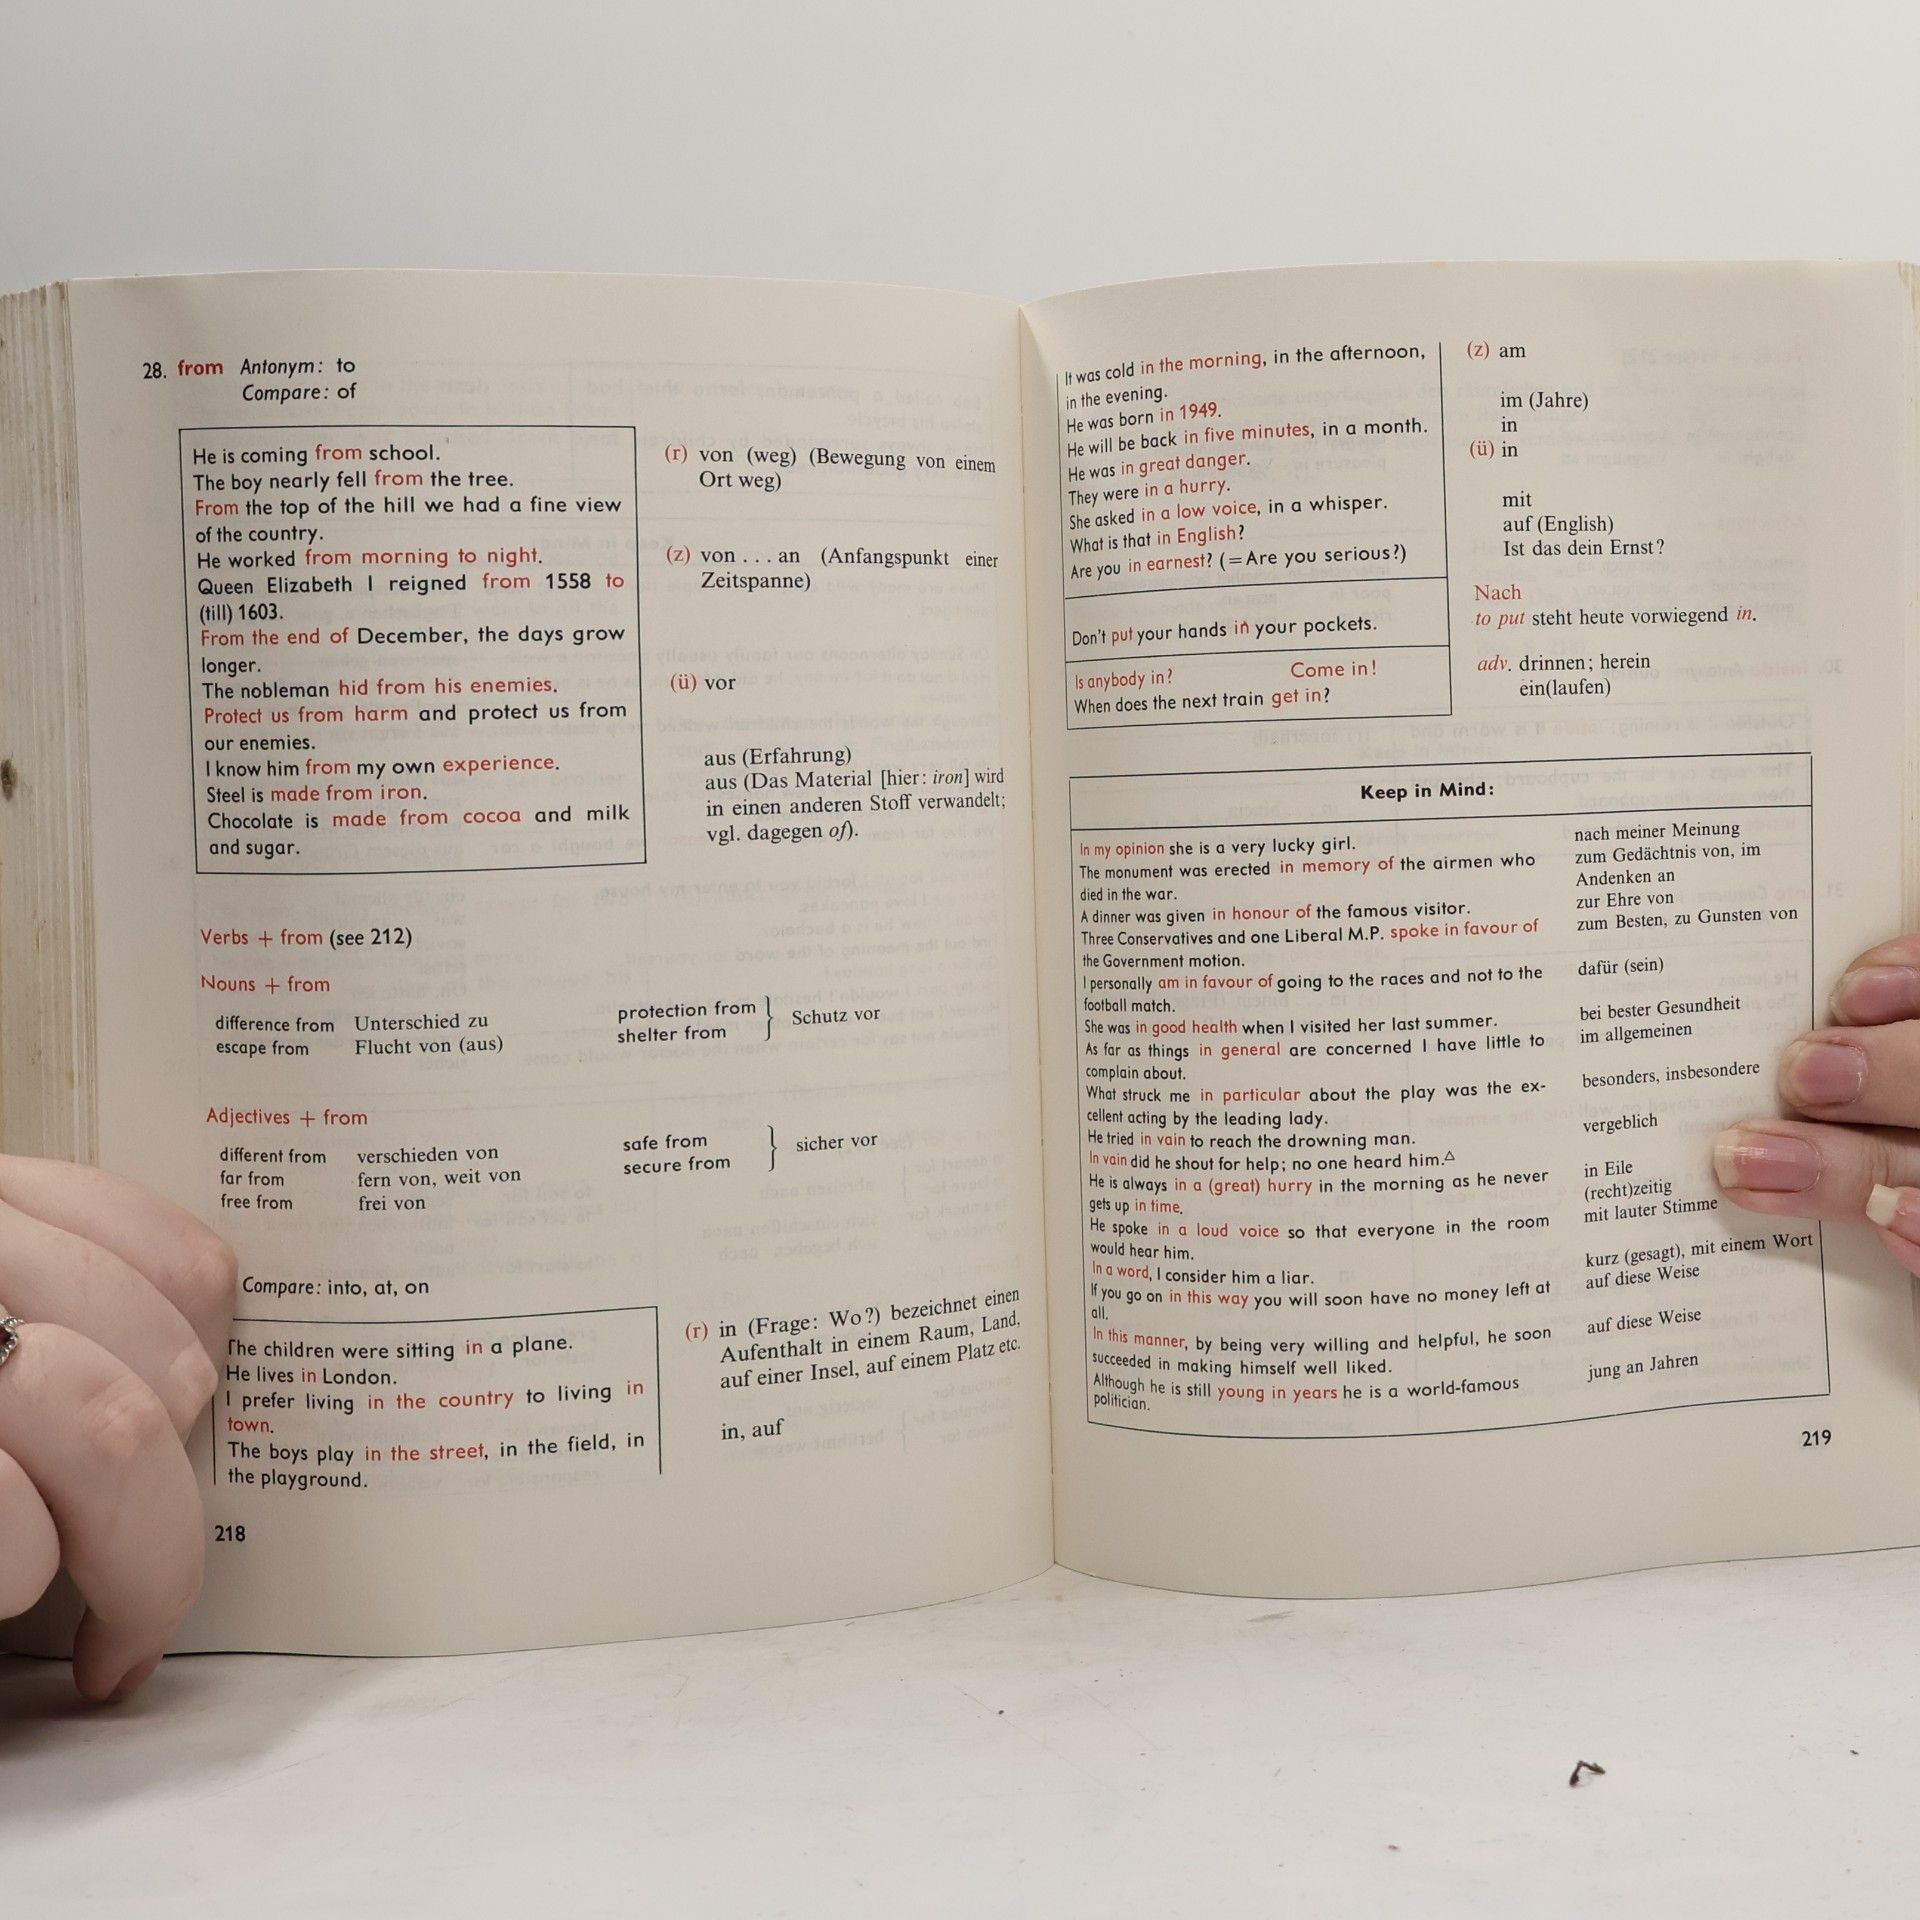 28. from Antonym: to
Compare: of
He is coming from school.
The boy nearly fell from the tree.
From the top of the hill we had a fine view
of the country.
He worked from morning to night.
Queen Elizabeth I reigned from 1558 to
(till) 1603.
From the end of December, the days grow
longer.
The nobleman hid from his enemies.
Protect us from harm and protect us from
our enemies.
I know him from my own experience.
Steel is made from iron.
Chocolate is made from cocoa and milk
and sugar.
(r) von (weg) (Bewegung von einem
Ort weg)
(z) von . . . an (Anfangspunkt einer
Zeitspanne)
(ü) vor
aus (Erfahrung)
aus (Das Material [hier: iron] wird
in einen anderen Stoff verwandelt;
vgl. dagegen of).
Verbs + from (see 212)
Nouns + from
difference from Unterschied zu
escape from Flucht von (aus)
protection from
shelter from } Schutz vor
Adjectives + from
different from verschieden von
far from fern von, weit von
free from frei von
safe from
secure from } sicher vor
Compare: into, at, on
The children were sitting in a plane.
He lives in London.
I prefer living in the country to living in
town.
The boys play in the street, in the field, in
the playground.
(r) in (Frage: Wo?) bezeichnet einen
Aufenthalt in einem Raum, Land,
auf einer Insel, auf einem Platz etc.
in, auf
218
It was cold in the morning, in the afternoon,
in the evening.
He was born in 1949.
He will be back in five minutes, in a month.
He was in great danger.
They were in a hurry.
She asked in a low voice, in a whisper.
What is that in English?
Are you in earnest? (=Are you serious?)
Don't put your hands in your pockets.
Is anybody in? Come in!
When does the next train get in?
(z) am
im (Jahre)
in
(ü) in
mit
auf (English)
Ist das dein Ernst?
Nach
to put steht heute vorwiegend in.
adv. drinnen; herein
ein(laufen)
Keep in Mind:
In my opinion she is a very lucky girl.
The monument was erected in memory of the airmen who
died in the war.
A dinner was given in honour of the famous visitor.
Three Conservatives and one Liberal M.P. spoke in favour of
the Government motion.
I personally am in favour of going to the races and not to the
football match.
She was in good health when I visited her last summer.
As far as things in general are concerned I have little to
complain about.
What struck me in particular about the play was the ex-
cellent acting by the leading lady.
He tried in vain to reach the drowning man.
In vain did he shout for help; no one heard him.△
He is always in a (great) hurry in the morning as he never
gets up in time.
He spoke in a loud voice so that everyone in the room
would hear him.
In a word, I consider him a liar.
If you go on in this way you will soon have no money left at
all.
In this manner, by being very willing and helpful, he soon
succeeded in making himself well liked.
Although he is still young in years he is a world-famous
politician.
nach meiner Meinung
zum Gedächtnis von, im
Andenken an
zur Ehre von
zum Besten, zu Gunsten von
dafür (sein)
bei bester Gesundheit
im allgemeinen
besonders, insbesondere
vergeblich
in Eile
(recht)zeitig
mit lauter Stimme
kurz (gesagt), mit einem Wort
auf diese Weise
auf diese Weise
jung an Jahren
219